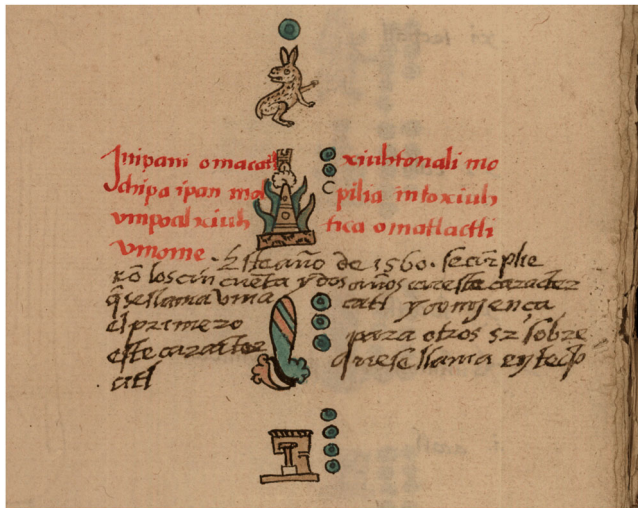 Inipani omacatl xiuhtonali mo
chipa ipan mol pilia intoxiuh
vmpoalxiuh tica omatlactli
vmome. Este año de 1560. se cũplie
rõ los cincuẽta y dos años en este caracter
q̃ se llama vma catl y comjença
el primero para otros 52 sobre
este caracter que se llama ey tecp
atl